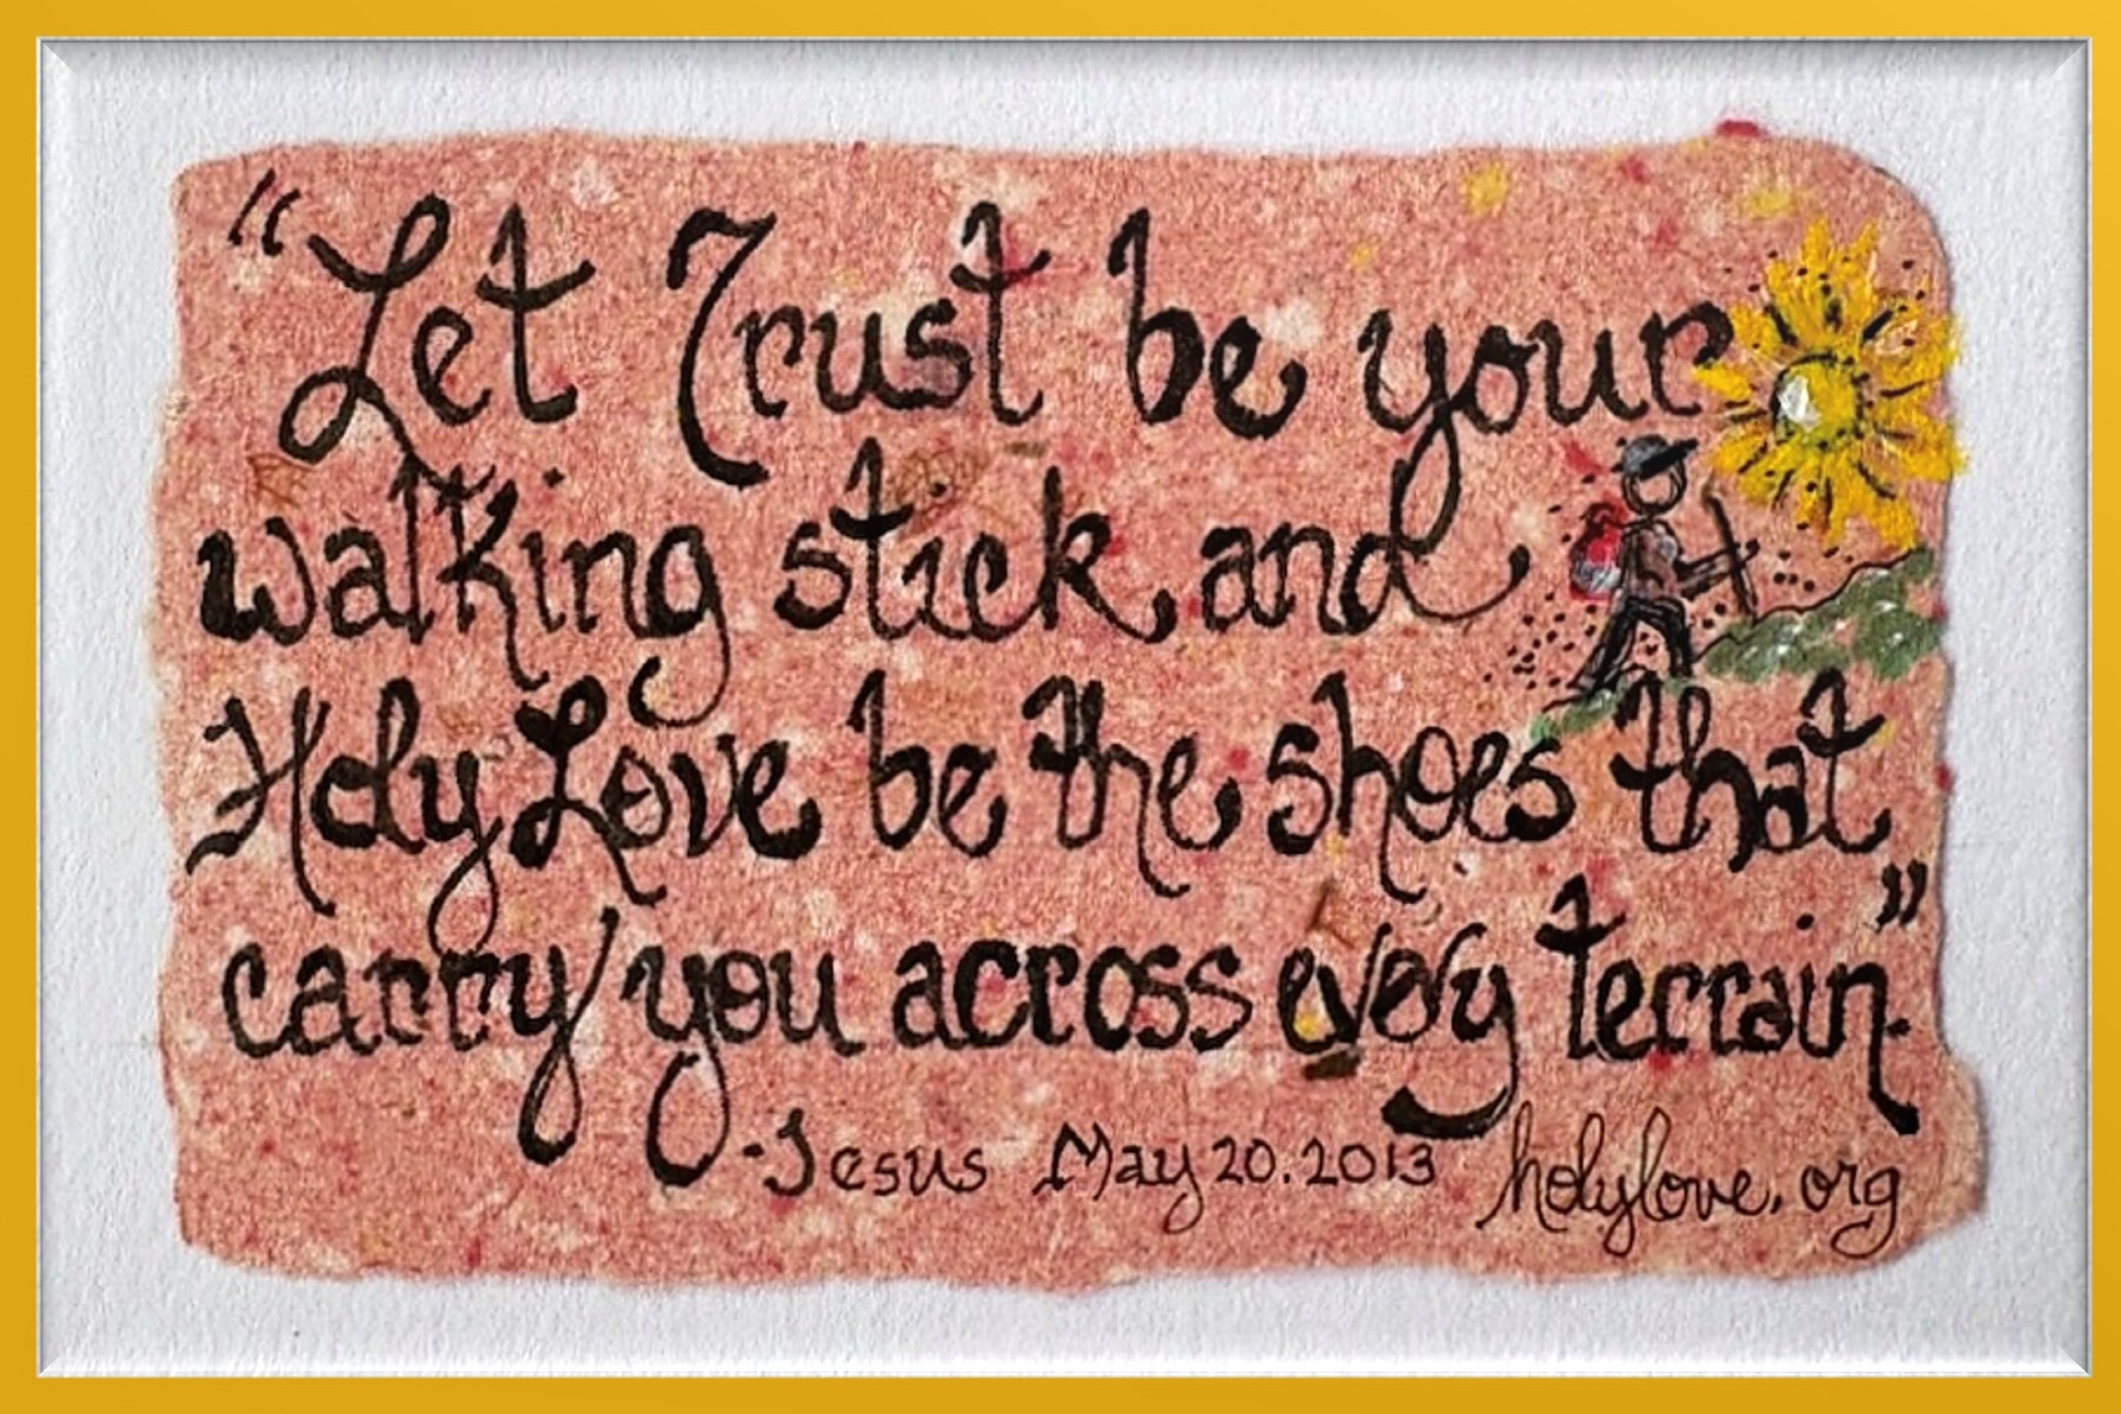 “Let Trust be your
walking stick and
Holy Love be the shoes that
carry you across every terrain.”
-Jesus May 20.2013 holylove.org